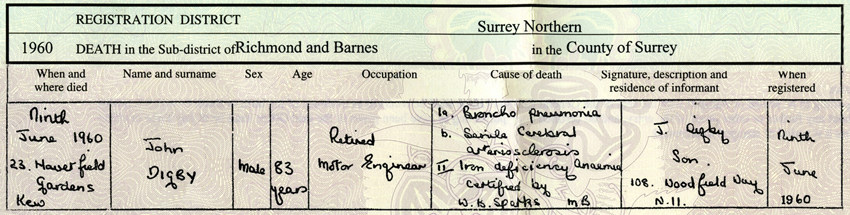 REGISTRATION DISTRICT
Surrey Northern
1960 DEATH in the Sub-district of Richmond and Barnes in the County of Surrey
When and where died
Name and surname
Sex
Age
Occupation
Cause of death
Signature, description and residence of informant
When registered
Ninth
June 1960
23. Haverfield
Gardens
Kew
John
DIGBY
Male
83
years
Retired
Motor Engineer
Ia. Broncho pneumonia
b. Senile Cerebral
arteriosclerosis
II Iron deficiency Anaemia
Certified by
W. B. Sparks MB
J. Digby
Son.
108. Woodfield Way
N.11.
Ninth
June
1960